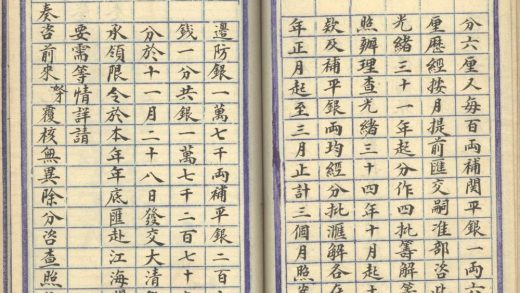 分六厘又每百兩補關平銀一兩六
厘歷經按月提前匯交嗣准部咨
光緒三十一年起分作四批籌解等
照辦理查光緒三十四年十月起十
欵及補平銀兩均經分批滙解各在
年正月起至三月止計三個月照
邊防銀一萬七千兩補平銀二百
錢一分共銀一萬七千二百七十
分於十一月二十八日發交大清
承領限令於本年年底匯赴江海
要需等情詳請
奏咨前來覆核無異除分咨查照